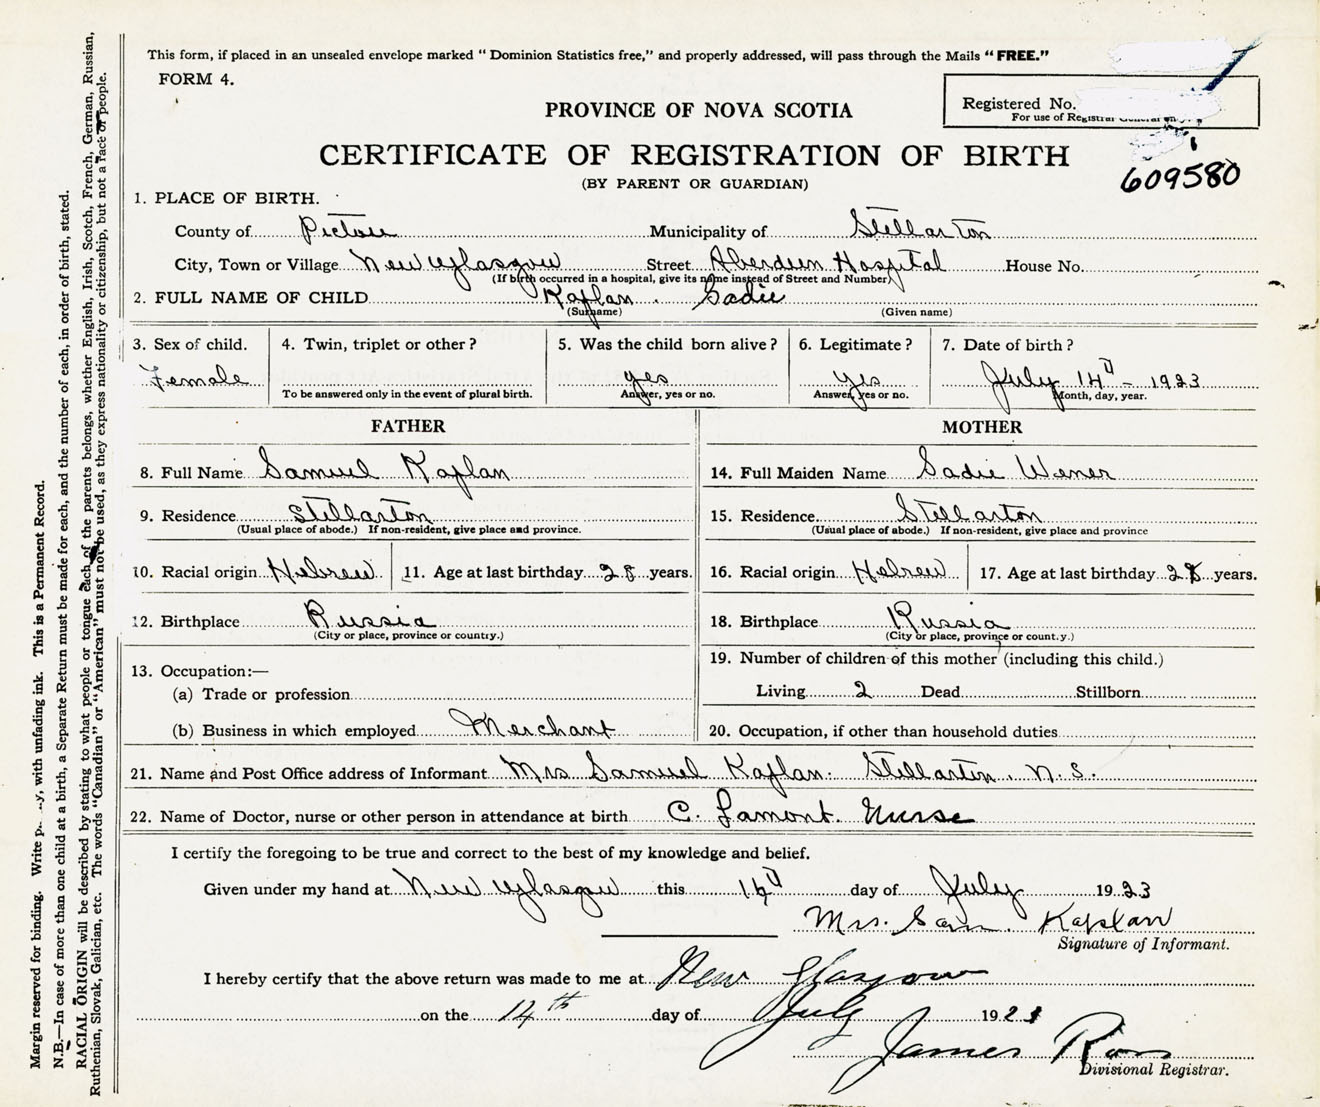 This form, if placed in an unsealed envelope marked "Dominion Statistics free," and properly addressed, will pass through the Mails "FREE."
FORM 4.
Registered No.
For use of Registrar General
PROVINCE OF NOVA SCOTIA
CERTIFICATE OF REGISTRATION OF BIRTH
(BY PARENT OR GUARDIAN)
609580
1. PLACE OF BIRTH.
County of Pictou Municipality of Stellarton
City, Town or Village New Glasgow Street Aberdeen Hospital House No.
(If birth occurred in a hospital, give its name instead of Street and Number)
2. FULL NAME OF CHILD Kaplan Sadie
(Surname) (Given name)
3. Sex of child. 4. Twin, triplet or other? 5. Was the child born alive? 6. Legitimate? 7. Date of birth?
Female yes yes July 14th - 1923
To be answered only in the event of plural birth. Answer, yes or no. Answer, yes or no. Month, day, year.
FATHER MOTHER
8. Full Name Samuel Kaplan 14. Full Maiden Name Sadie Wener
9. Residence Stellarton 15. Residence Stellarton
(Usual place of abode.) If non-resident, give place and province. (Usual place of abode.) If non-resident, give place and province
10. Racial origin Hebrew 11. Age at last birthday 28 years. 16. Racial origin Hebrew 17. Age at last birthday 28 years.
12. Birthplace Russia 18. Birthplace Russia
(City or place, province or country.) (City or place, province or country.)
13. Occupation:— 19. Number of children of this mother (including this child.)
(a) Trade or profession Living 2 Dead Stillborn
(b) Business in which employed Merchant 20. Occupation, if other than household duties
21. Name and Post Office address of Informant Mrs Samuel Kaplan. Stellarton. N.S.
22. Name of Doctor, nurse or other person in attendance at birth C. Lamont. Nurse
I certify the foregoing to be true and correct to the best of my knowledge and belief.
Given under my hand at New Glasgow this 14th day of July 1923
Mrs. Sam. Kaplan
Signature of Informant.
I hereby certify that the above return was made to me at New Glasgow
on the 14th day of July 192
James Ross
Divisional Registrar.
Margin reserved for binding. Write with unfading ink. This is a Permanent Record.
N.B.—In case of more than one child at a birth, a Separate Return must be made for each, and the number of each, in order of birth, stated.
RACIAL ORIGIN will be described by stating to what people or tongue each of the parents belongs, whether English, Irish, Scotch, French, German, Russian,
Ruthenian, Slovak, Galician, etc. The words "Canadian" or "American" must not be used, as they express nationality or citizenship, but not a race or people.